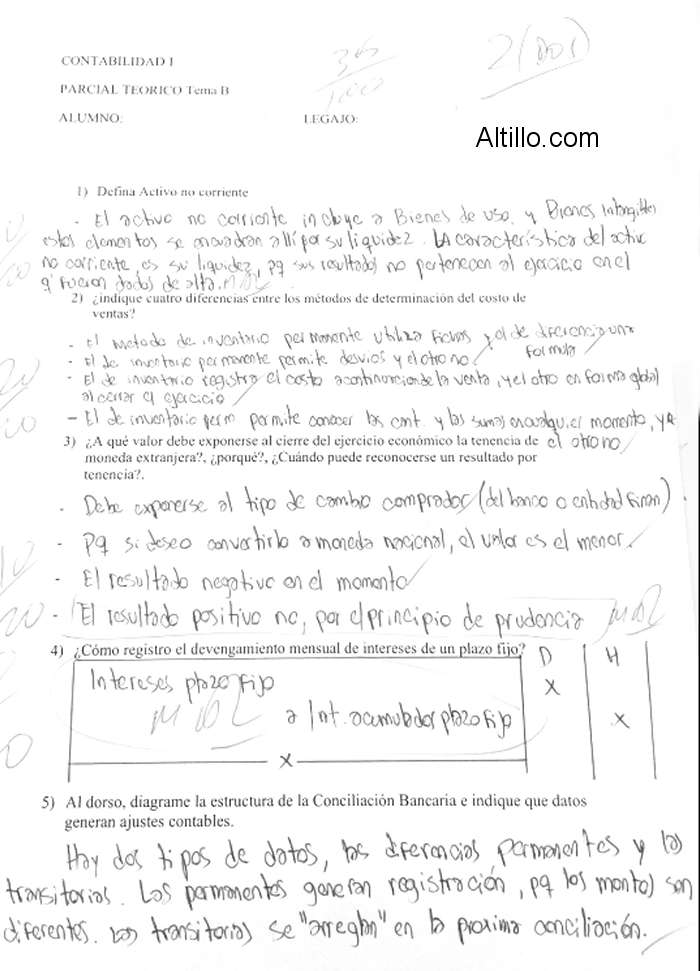 CONTABILIDAD I
36/100
2 (DOS)
PARCIAL TEORICO Tema B
ALUMNO:
LEGAJO:
Altillo.com
1) Defina Activo no corriente
- El activo no corriente incluye a Bienes de uso. y Bienes Intangibles
estos elementos se encuadran allí por su liquidez. LA característica del activo
no corriente, es su liquidez, pq sus resultados no pertenecen al ejercicio en el
q' fueron dados de alta. MAL
2) ¿indique cuatro diferencias entre los métodos de determinación del costo de
ventas?
- El metodo de inventario permanente utiliza fichas y el de diferencia una
formula
- El de inventario permanente permite desvios y el otro no.
- El de inventario registra el costo a continuacion de la venta, y el otro en forma global
al cerrar el ejercicio
- El de inventario perm permite conocer las cant. y las sumas en cualquier momento, y
el otro no
3) ¿A qué valor debe exponerse al cierre del ejercicio económico la tenencia de
moneda extranjera?, ¿porqué?, ¿Cuándo puede reconocerse un resultado por
tenencia?.
- Debe exponerse al tipo de cambio comprador (del banco o entidad finan)
- Pq si deseo convertirlo a moneda nacional, el valor es el menor.
- El resultado negativo en el momento
- El resultado positivo no, por el principio de prudencia MAL
4) ¿Cómo registro el devengamiento mensual de intereses de un plazo fijo?
D H
Intereses plazo fijo X
MAL
a Int. acumulados plazo fijo X
X
5) Al dorso, diagrame la estructura de la Conciliación Bancaria e indique que datos
generan ajustes contables.
Hay dos tipos de datos, las diferencias permanentes y las
transitorias. Las permanentes generan registración, pq los montos son
diferentes. Las transitorias se "arreglan" en la proxima conciliación.